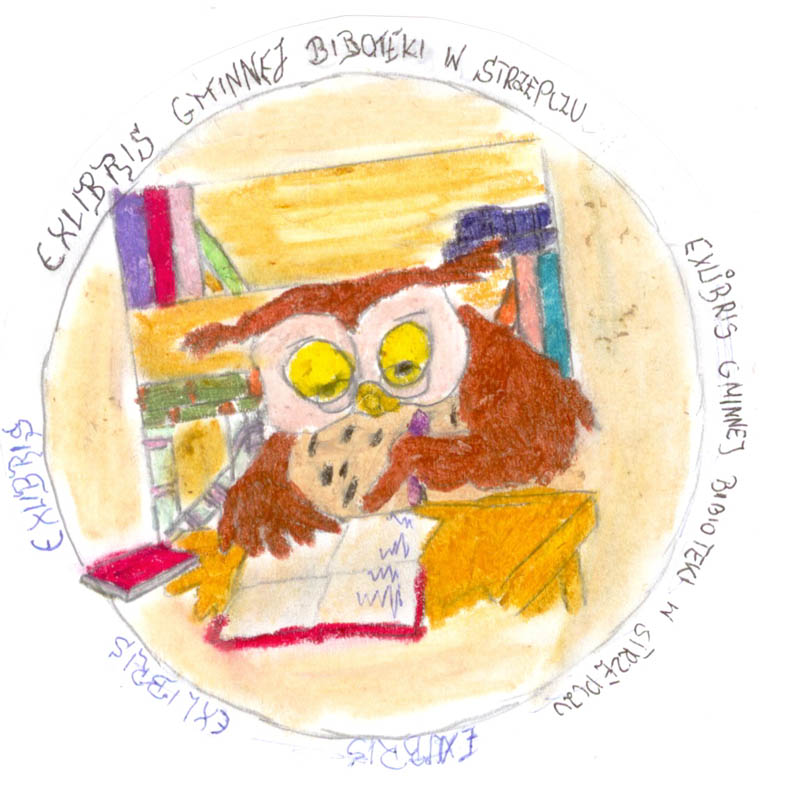 EXLIBRIS GMINNEJ BIBOTEKI W STRZEPCZU
EXLIBRIS GMINNEJ BIBIOTEKI W STRZEPCZU
EXLIBRIS
EXLIBRIS
EXLIBRIS